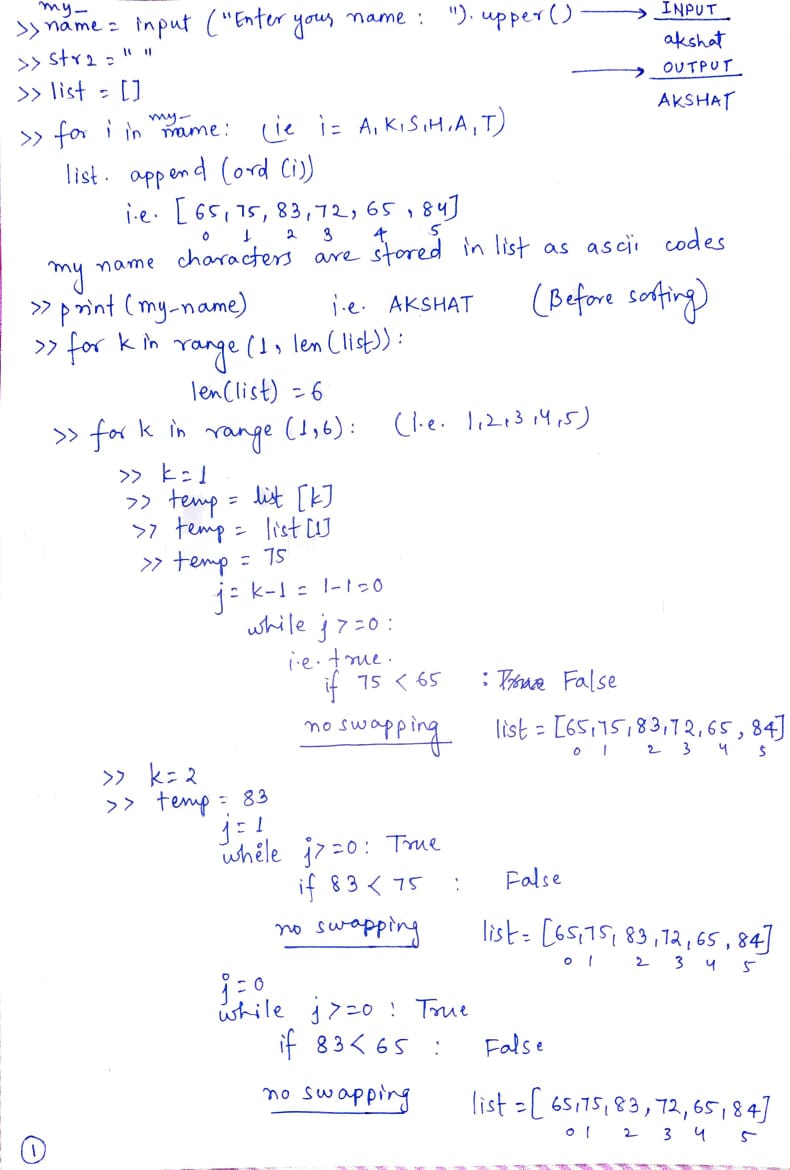 my_
>> name = input ("Enter your name : "). upper () → INPUT
akshat
>> str2 = " "
→ OUTPUT
>> list = []
AKSHAT
my_
>> for i in name: (ie i = A, K, S, H, A, T)
list. append (ord (i))
i.e. [65, 75, 83, 72, 65, 84]
0 1 2 3 4 5
my name characters are stored in list as ascii codes
>> print (my-name) i.e. AKSHAT (Before sorting)
>> for k in range (1, len (list)) :
len(list) = 6
>> for k in range (1,6) : (i.e. 1,2,3,4,5)
>> k=1
>> temp = list [k]
>> temp = list [1]
>> temp = 75
j = k-1 = 1-1=0
while j >=0 :
i.e. true.
if 75 < 65 : True False
no swapping list = [65,75,83,72,65, 84]
0 1 2 3 4 5
>> k=2
>> temp = 83
j=1
while j>=0: True
if 83 < 75 : False
no swapping list = [65,75, 83,72,65, 84]
0 1 2 3 4 5
j=0
while j>=0 : True
if 83< 65 : False
no swapping list =[ 65,75, 83, 72, 65, 84]
0 1 2 3 4 5
1